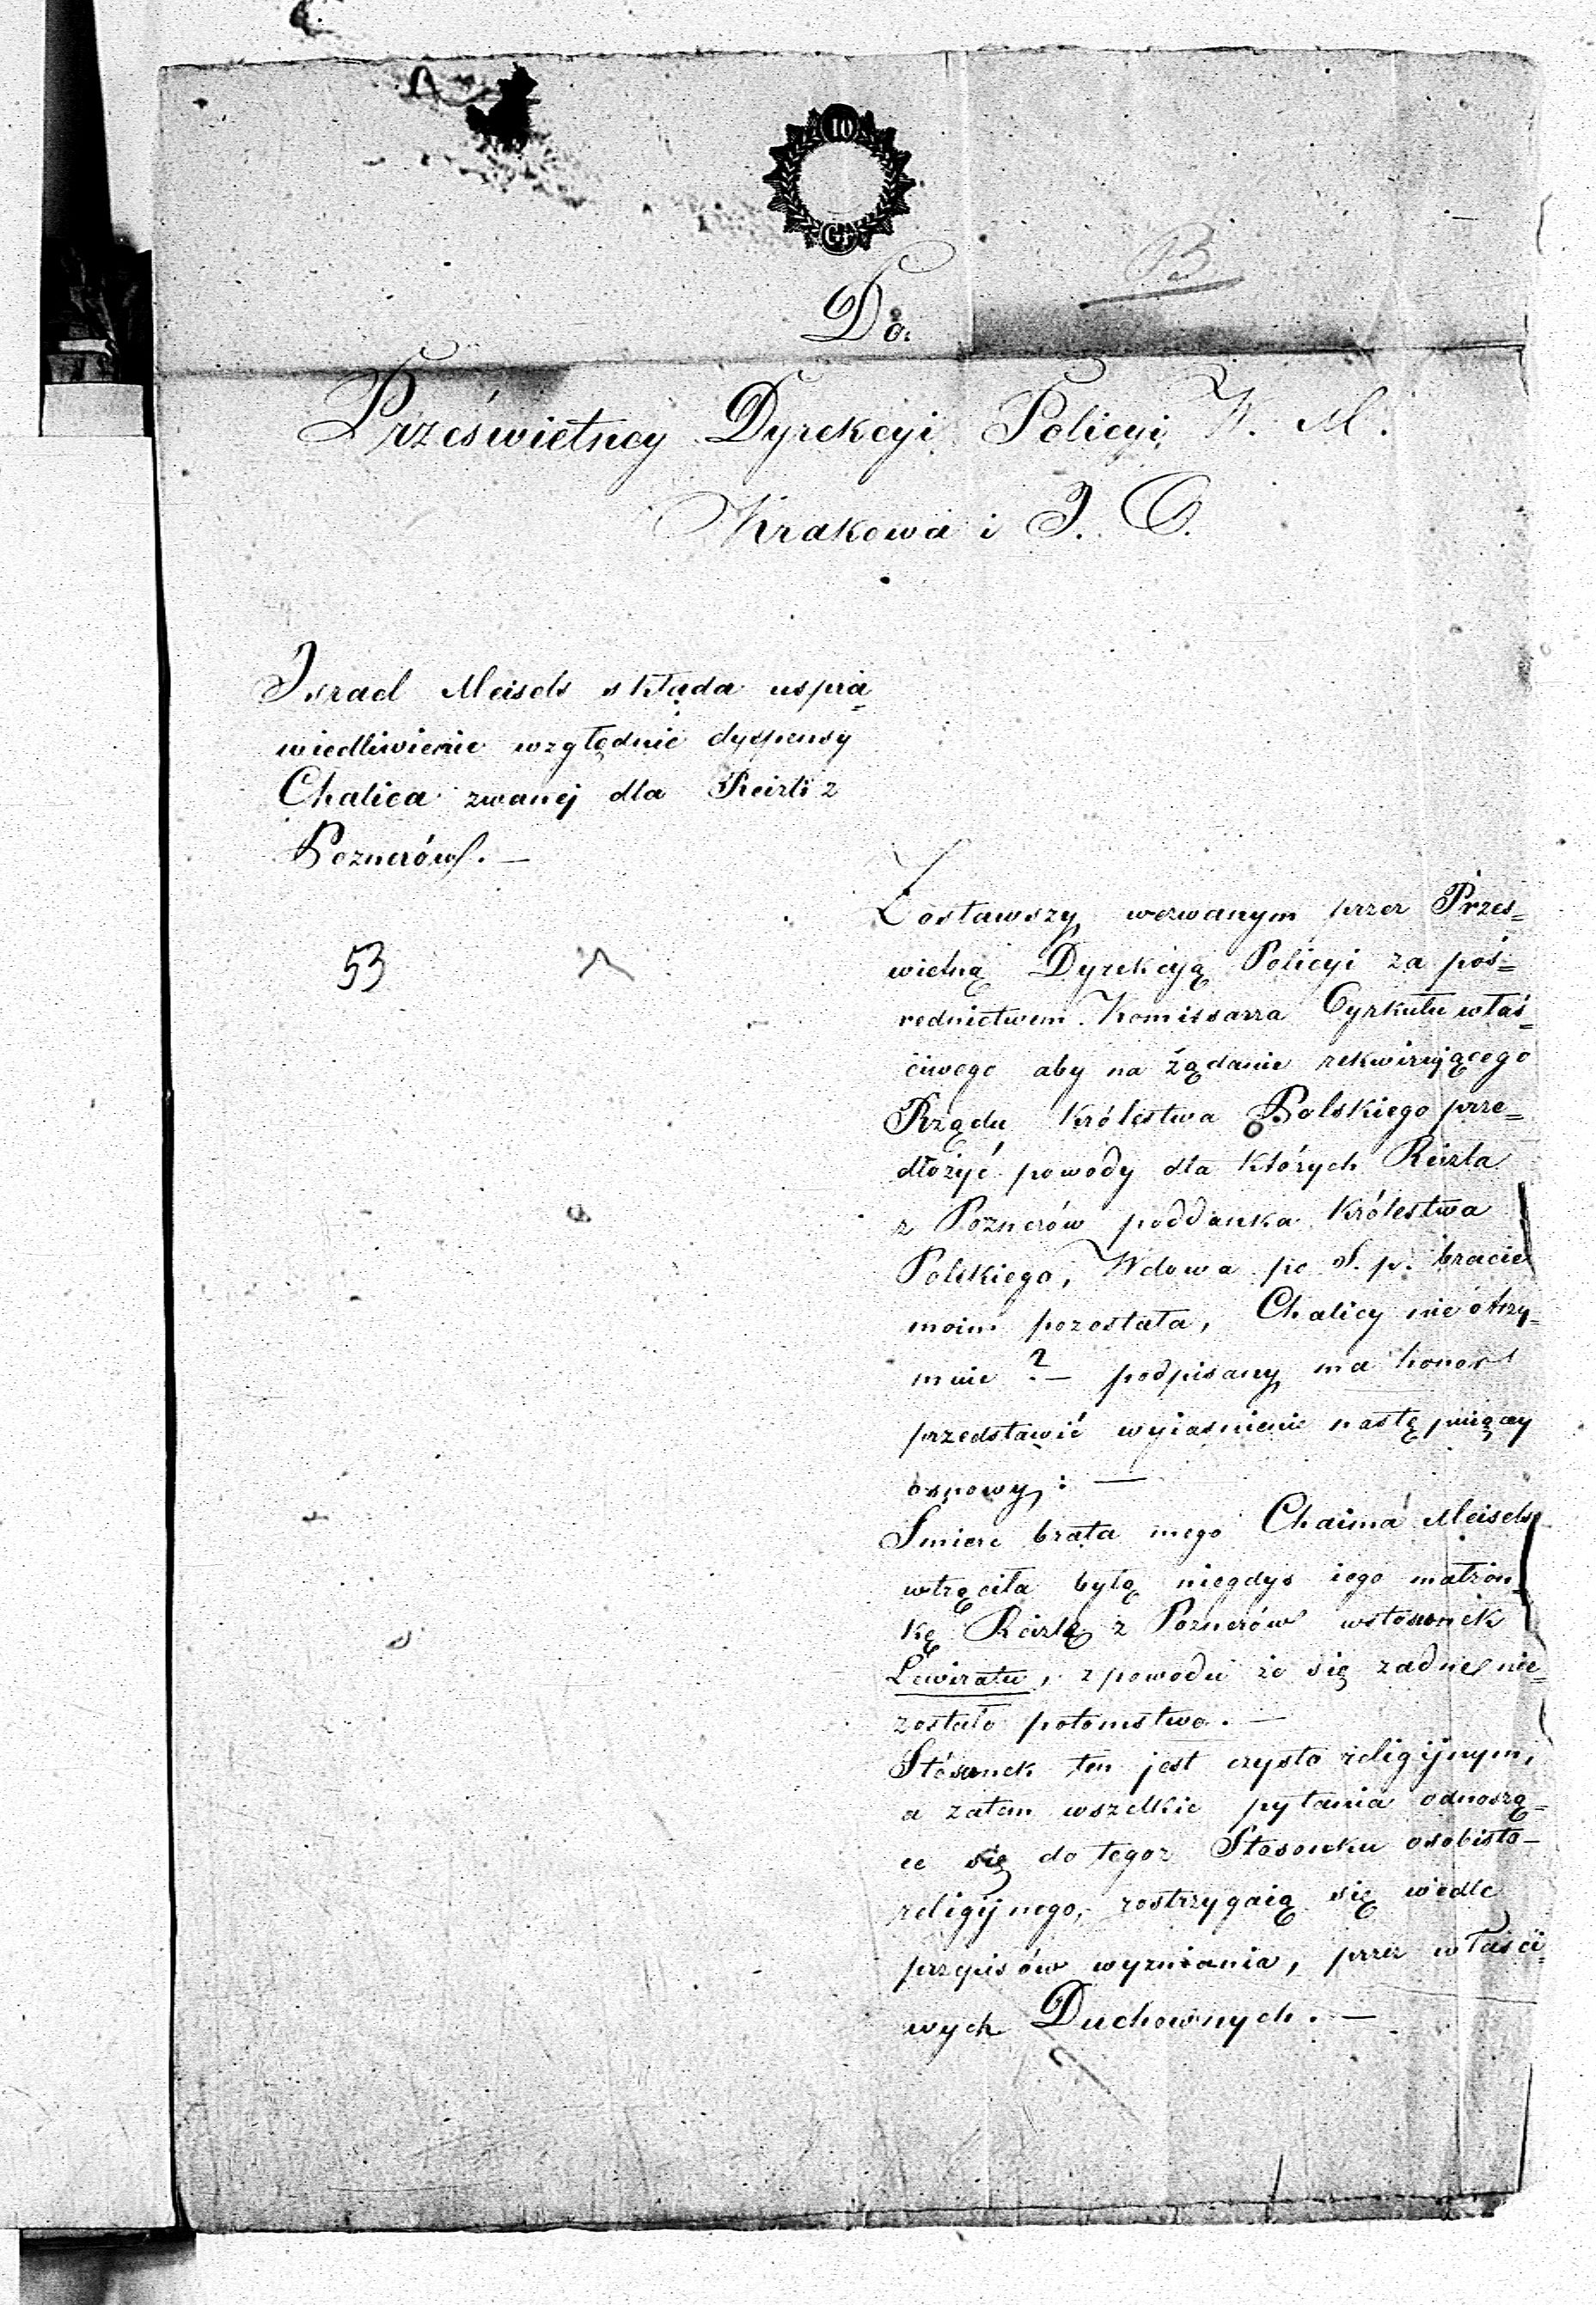 10
Gr
B
Do
Prześwietney Dyrekcyi Policyi W. M.
Krakowa i J. O.
Israel Meisels składa uspra=
wiedliwienie względnie dyspensy
Chalica zwanej dla Reizli z
Poznerów. —
53
Zostawszy wezwanym przez Prześ=
wietną Dyrekcyą Policyi za poś=
rednictwem Komissarza Cyrkułu właś=
ciwego aby na żądanie rekwirującego
Rządu Królestwa Polskiego prze=
dłożyć powody dla których Reizla
z Poznerów poddanka Królestwa
Polskiego, Wdowa po ś. p. bracie
moim pozostała, Chalicy nie otrzy=
muie ? — podpisany ma honor
przedstawić wyiasnienie następuiącey
osnowy: —
Smierc brata mego Chaima Meisels
wtrąciła byłą niegdys iego małżon=
kę Reizlę z Poznerów wstosunek
Lewiratu, z powodu że się zadne nie=
zostało potomstwo. —
Stósunek ten jest czysto religijnym,
a zatem wszelkie pytania odnoszą=
ce się do tegoz Stosunku osobisto—
religijnego, rostrzygaią się wedle
przepisów wyznania, przez właści=
wych Duchownych. —